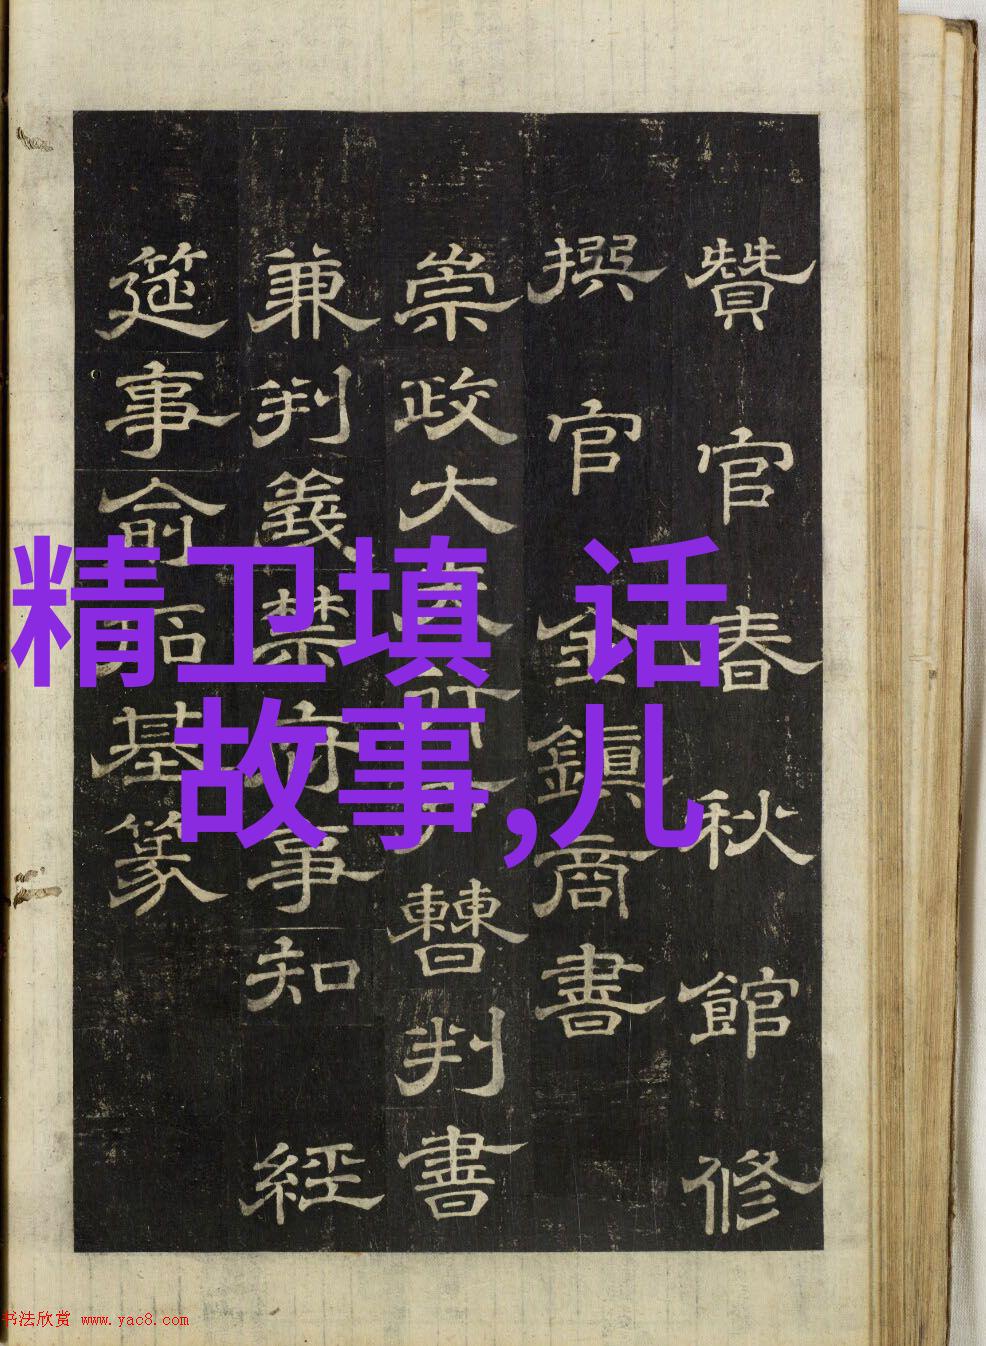 贊官春秋館修
撰官金鎮商書
崇政大夫行戶曹判書
兼判義禁府事知經
筵事俞拓基篆
精卫填 话
故事,儿
书法欣赏 www.yac8.com